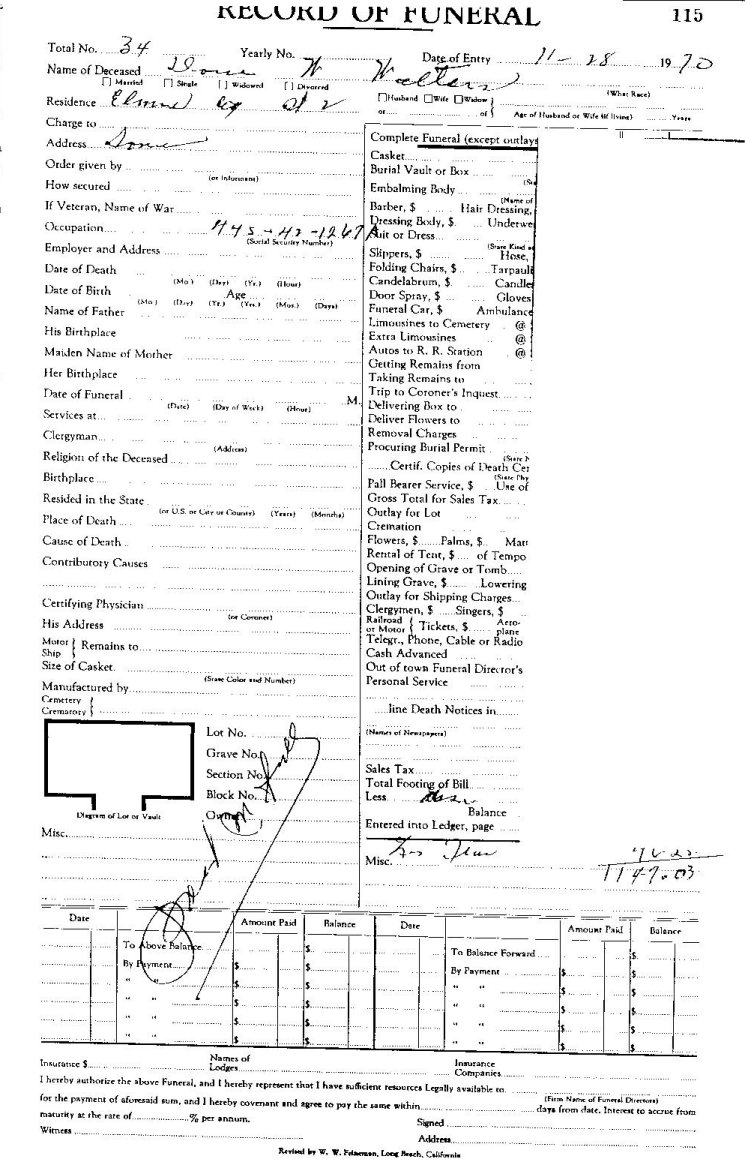 RECORD OF FUNERAL 115
Total No. 34 Yearly No. Date of Entry 11-28 1970
Name of Deceased W Walters (What Race)
Married Single Widowed Divorced
Residence Husband Wife Widow
or of Age of Husband or Wife (if living) Years
Charge to
Address
Order given by
(or Informant)
How secured
If Veteran, Name of War
Occupation
(Social Security Number)
Employer and Address
Date of Death
(Mo.) (Day) (Yr.) (Hour)
Date of Birth Age
(Mo.) (Day) (Yr.) (Yrs.) (Mos.) (Days)
Name of Father
His Birthplace
Maiden Name of Mother
Her Birthplace
Date of Funeral M.
(Date) (Day of Week) (Hour)
Services at
Clergyman
(Address)
Religion of the Deceased
Birthplace
Resided in the State
(or U.S. or City or County) (Years) (Months)
Place of Death
Cause of Death
Contributory Causes
Certifying Physician
(or Coroner)
His Address
Motor
Ship Remains to
Size of Casket
(State Color and Number)
Manufactured by
Cemetery
Crematory
Lot No.
Grave No.
Section No.
Block No.
Owner
Diagram of Lot or Vault
Misc.
Complete Funeral (except outlays
Casket
Burial Vault or Box
Embalming Body
(Name of
Barber, $ Hair Dressing,
Dressing Body, $ Underwe
Suit or Dress
(State Kind
Slippers, $ Hose,
Folding Chairs, $ Tarpauli
Candelabrum, $ Candle
Door Spray, $ Gloves
Funeral Car, $ Ambulance
Limousines to Cemetery @
Extra Limousines @
Autos to R. R. Station @
Getting Remains from
Taking Remains to
Trip to Coroner's Inquest
Delivering Box to
Deliver Flowers to
Removal Charges
Procuring Burial Permit
(State
Certif. Copies of Death Cer
(State Phy
Pall Bearer Service, $ Use of
Gross Total for Sales Tax
Outlay for Lot
Cremation
Flowers, $ Palms, $ Matt
Rental of Tent, $ of Tempo
Opening of Grave or Tomb
Lining Grave, $ Lowering
Outlay for Shipping Charges
Clergymen, $ Singers, $
Railroad
or Motor Tickets, $ Aero-
plane
Telegr., Phone, Cable or Radio
Cash Advanced
Out of town Funeral Director's
Personal Service
line Death Notices in
(Names of Newspapers)
Sales Tax
Total Footing of Bill
Less
Balance
Entered into Ledger, page
Misc.
1147.03
Date Amount Paid Balance Date Amount Paid Balance
To Above Balance $ To Balance Forward $
By Payment $ $ By Payment $ $
" " $ $ " " $ $
" " $ $ " " $ $
" " $ $ " " $ $
" " $ $ " " $ $
Insurance $ Names of
Lodges Insurance
Companies
I hereby authorize the above Funeral, and I hereby represent that I have sufficient resources Legally available to
(Firm Name of Funeral Directors)
for the payment of aforesaid sum, and I hereby covenant and agree to pay the same within days from date. Interest to accrue from
maturity at the rate of % per annum. Signed
Witness Address
Revised by W. W. Feineman, Long Beach, California